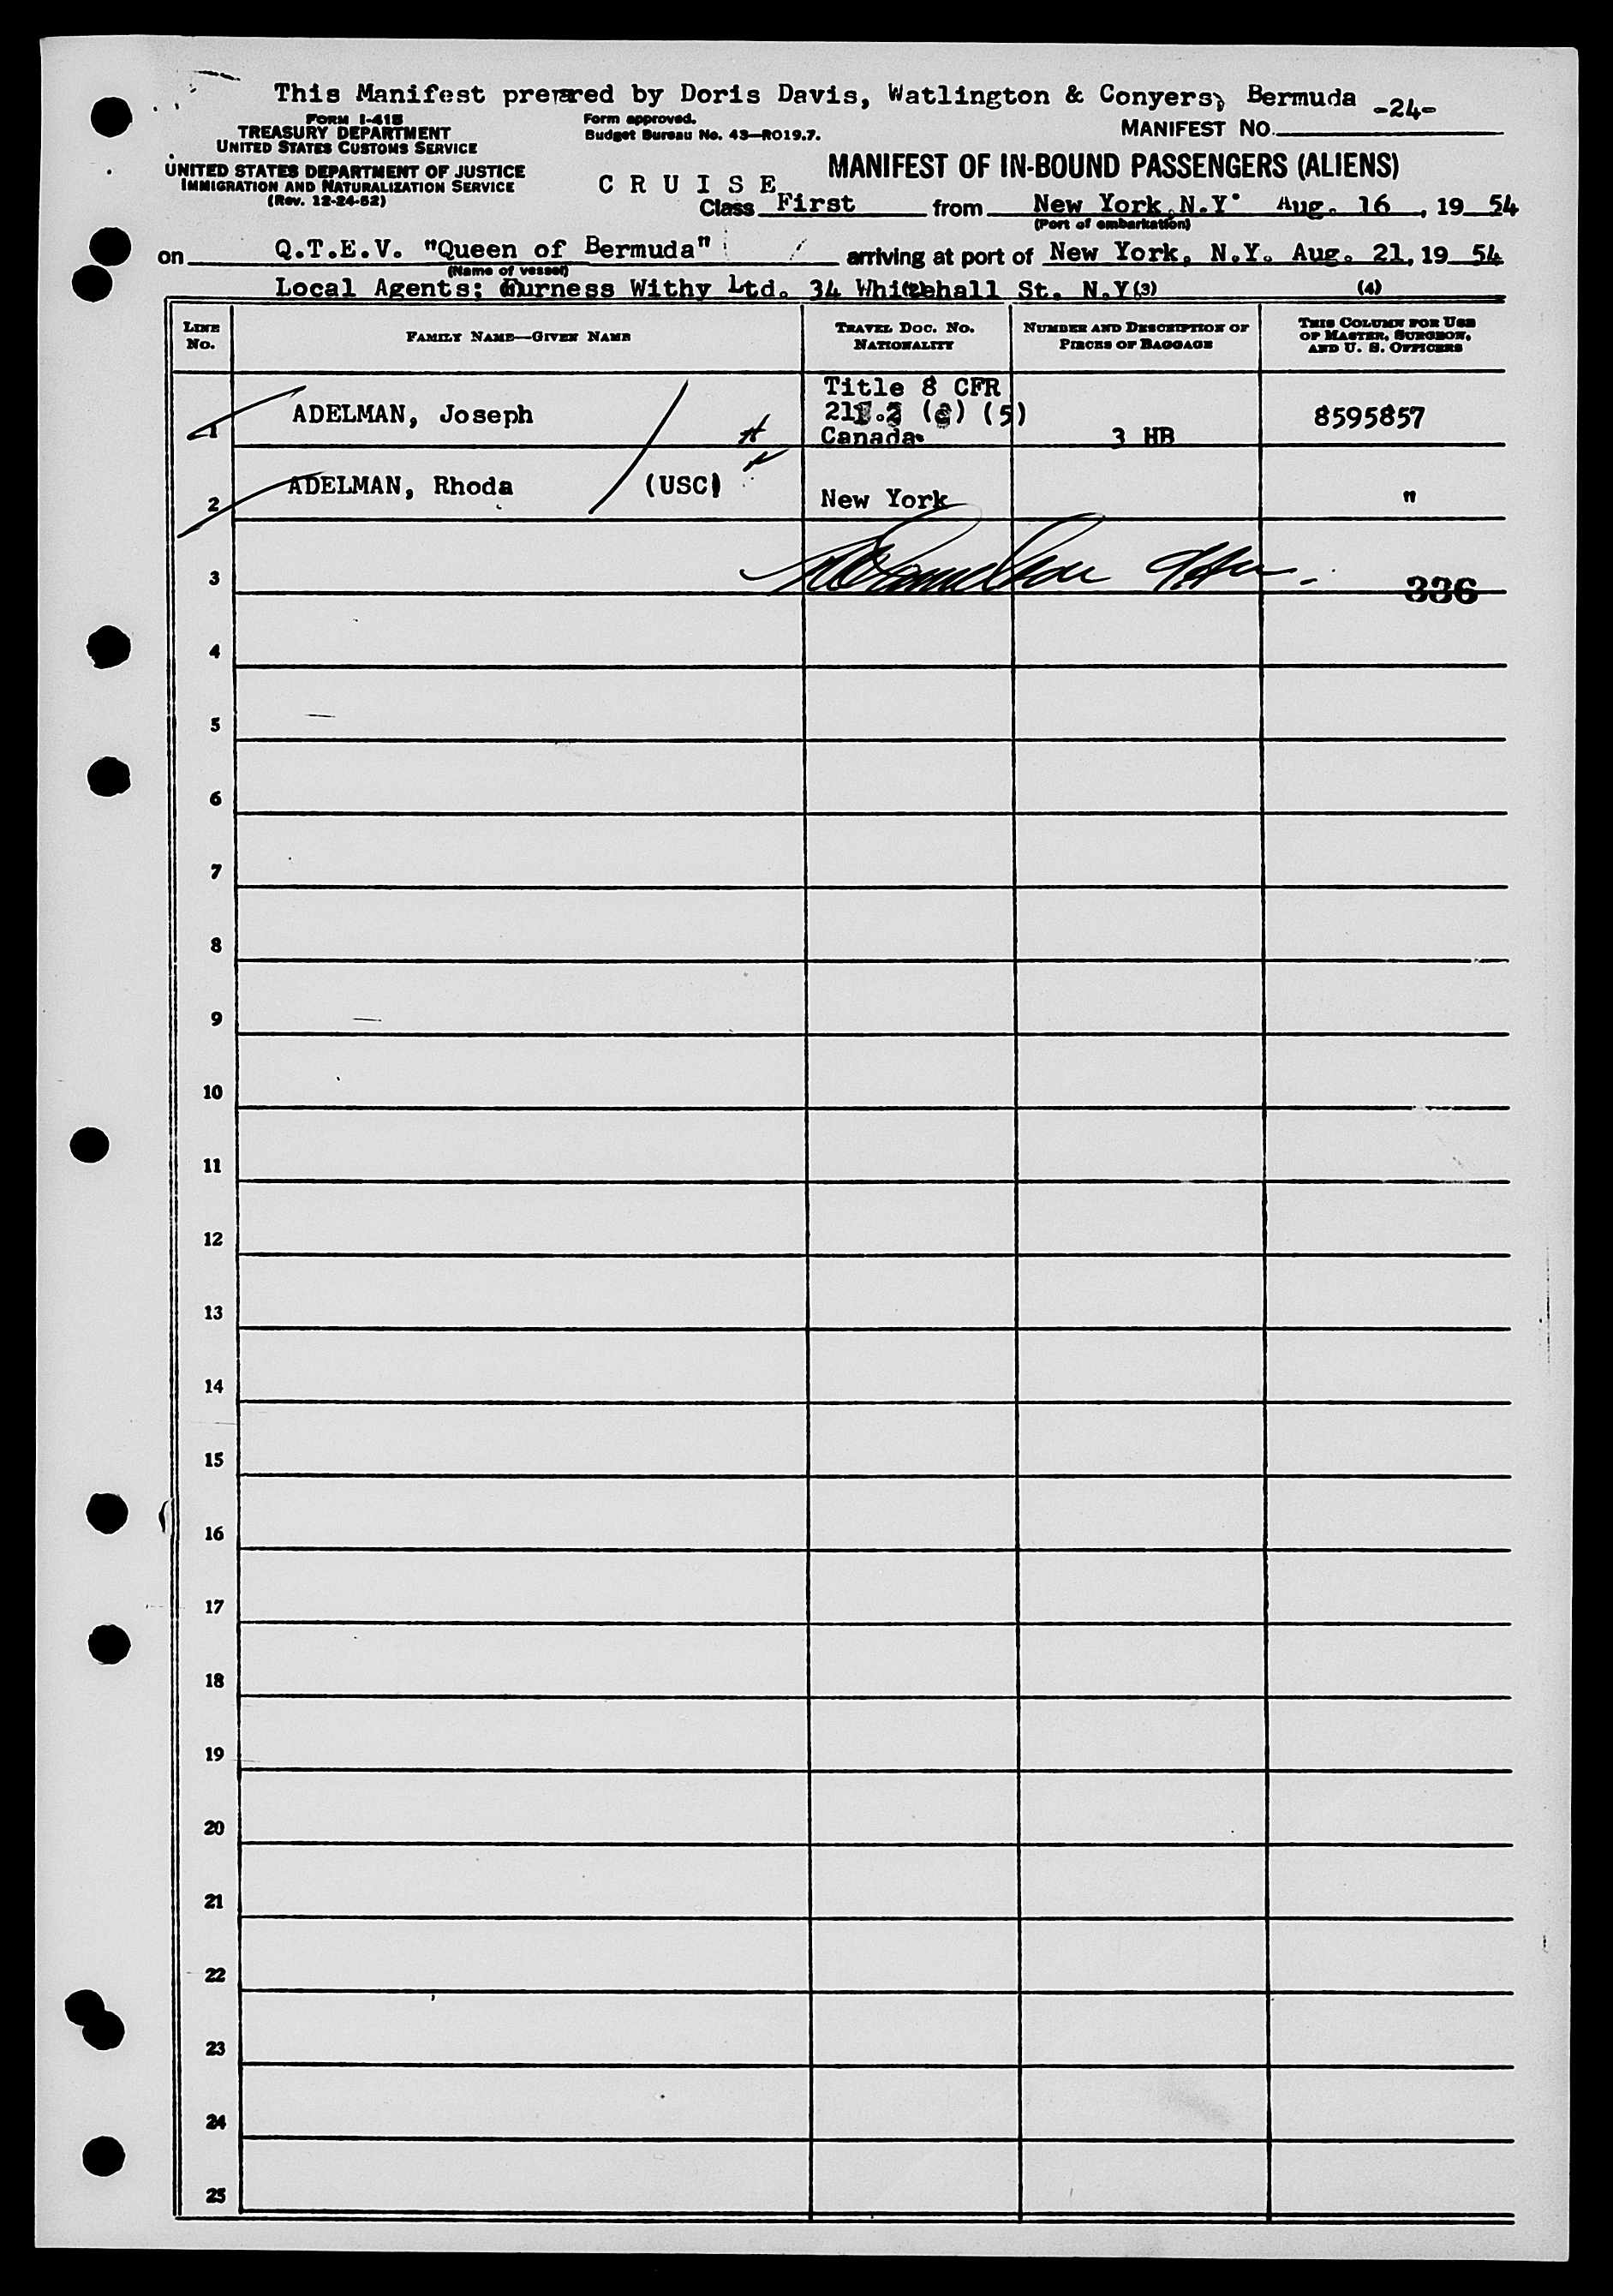 This Manifest prepared by Doris Davis, Watlington & Conyers, Bermuda -24-
FORM I-418
TREASURY DEPARTMENT
UNITED STATES CUSTOMS SERVICE
UNITED STATES DEPARTMENT OF JUSTICE
IMMIGRATION AND NATURALIZATION SERVICE
(Rev. 12-24-52)
Form approved.
Budget Bureau No. 43—R019.7.
MANIFEST NO.
MANIFEST OF IN-BOUND PASSENGERS (ALIENS)
C R U I S E
Class First from New York, N.Y. Aug. 16, 19 54
(Port of embarkation)
on Q.T.E.V. "Queen of Bermuda" arriving at port of New York, N.Y. Aug. 21, 19 54
(Name of vessel)
Local Agents; Furness Withy Ltd. 34 Whitehall St. N.Y. (3) (4)
LINE NO. FAMILY NAME—GIVEN NAME TRAVEL DOC. NO. NATIONALITY NUMBER AND DESCRIPTION OF PIECES OF BAGGAGE THIS COLUMN FOR USE OF MASTER, SURGEON, AND U. S. OFFICERS
Title 8 CFR
1 ADELMAN, Joseph (5) 8595857
Canada 3 HB
2 ADELMAN, Rhoda (USC) New York "
3 336
4
5
6
7
8
9
10
11
12
13
14
15
16
17
18
19
20
21
22
23
24
25